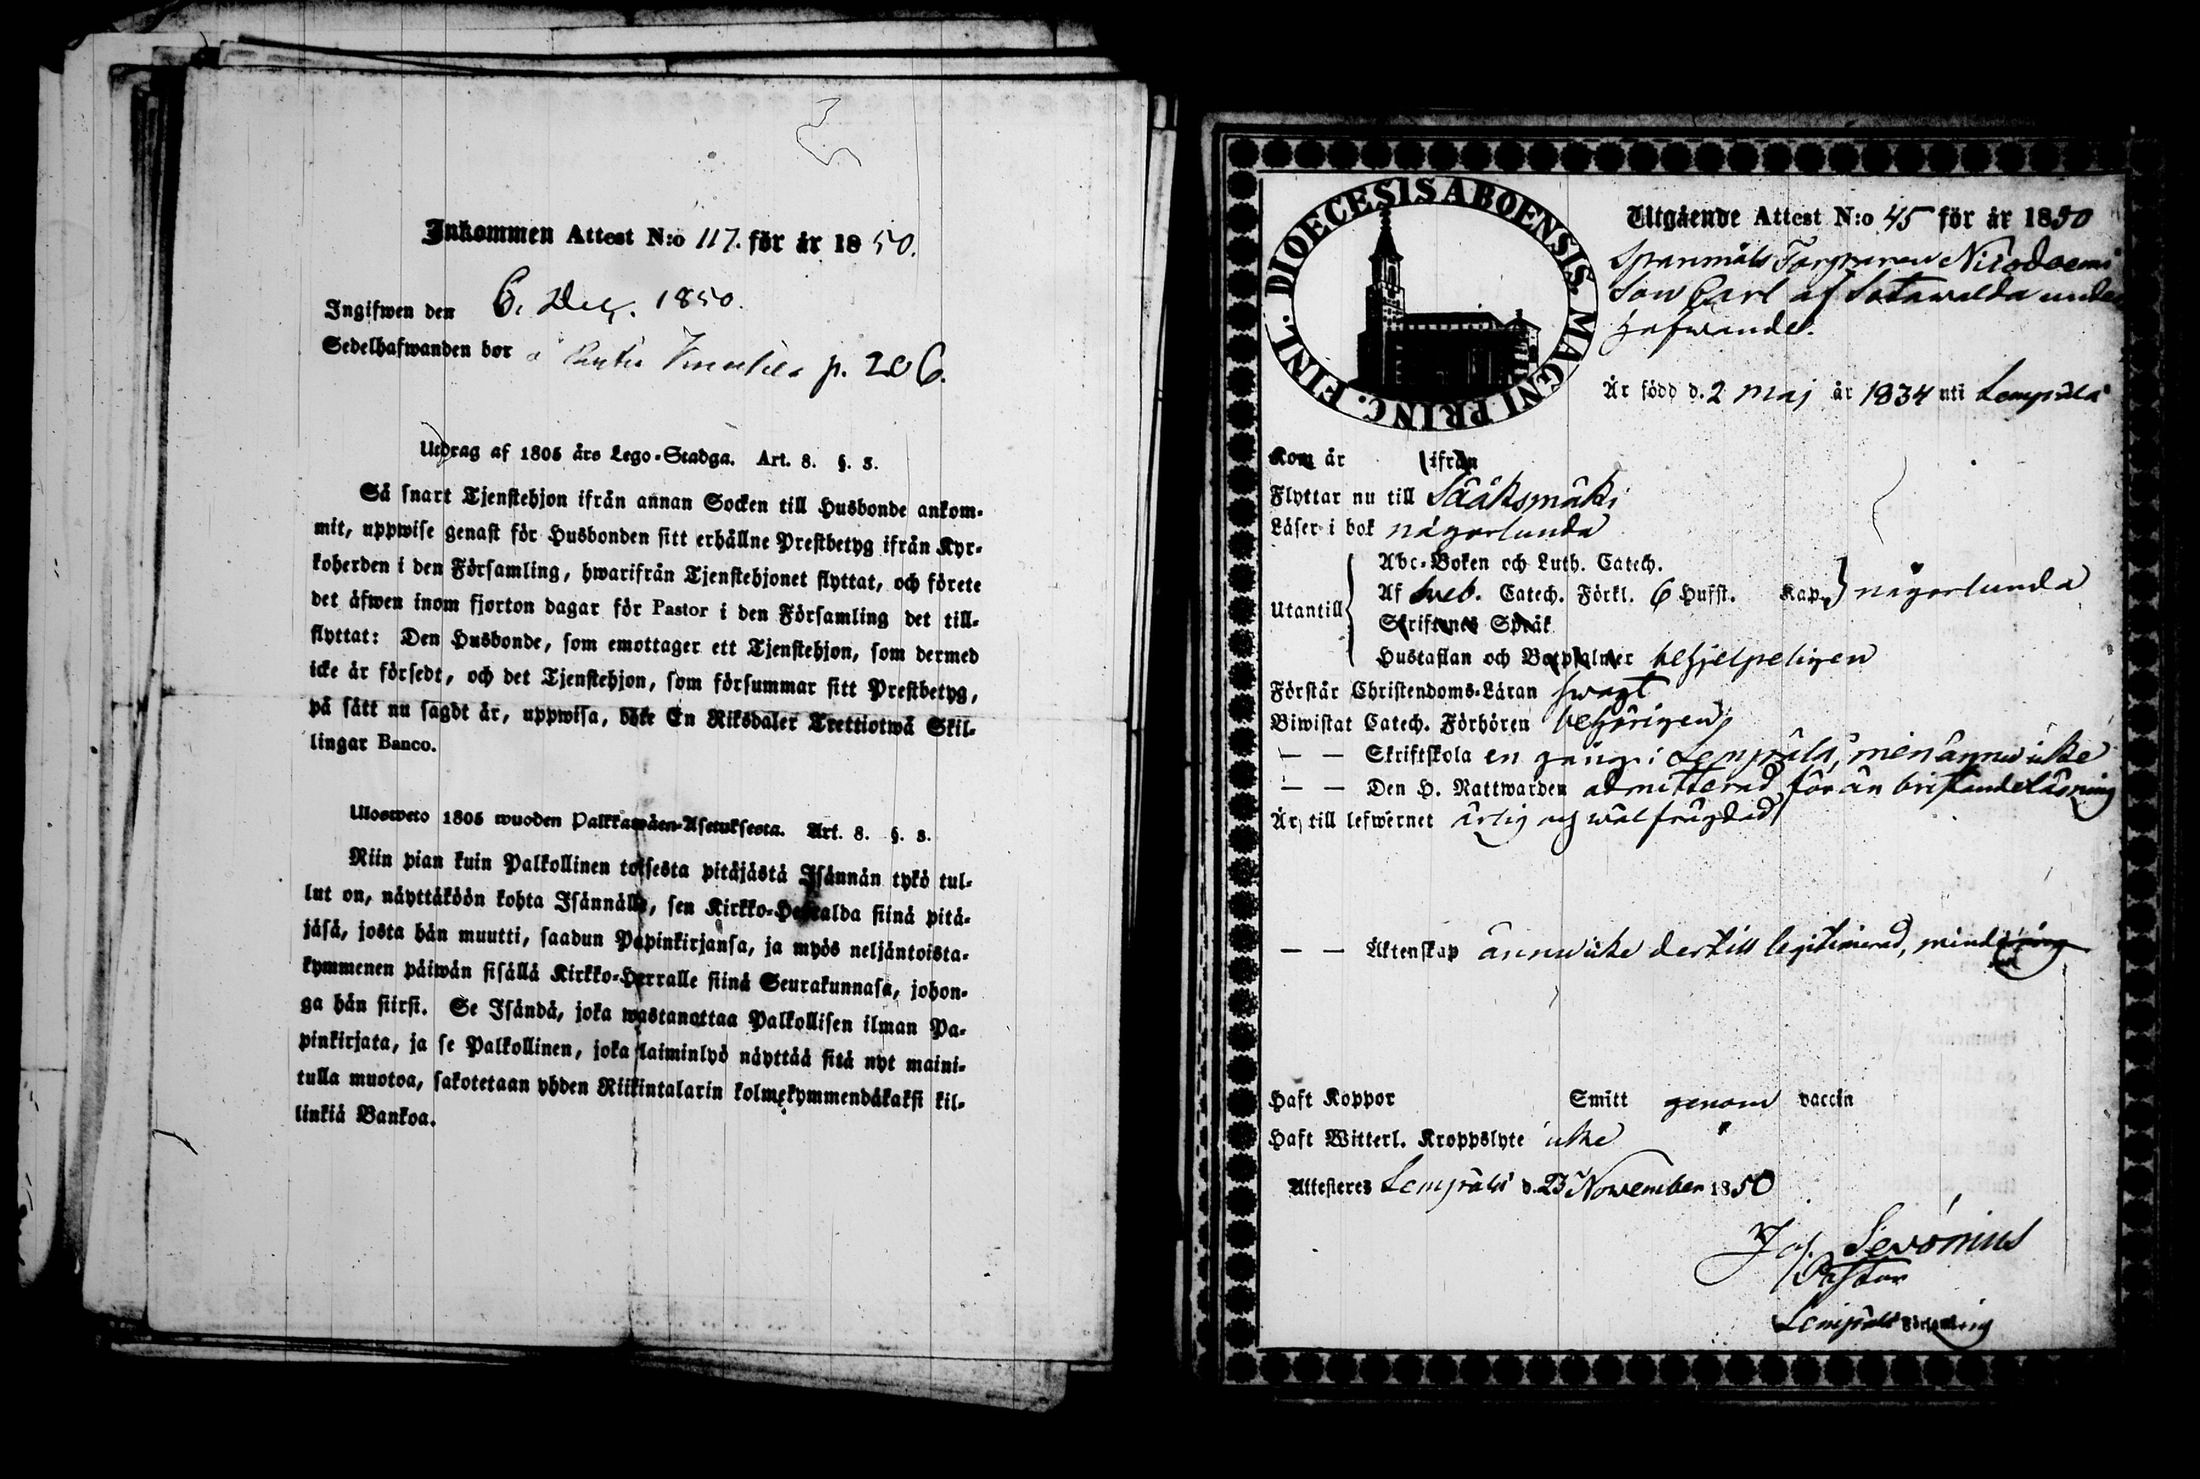 Inkommen Attest N:o 117. för år 1850.
Ingifwen den 6. Dec. 1850.
Sedelhafwanden bor å p. 206.
Utdrag af 1805 års Lego-Stadga. Art. 8. §. 3.
Så snart Tjenstehjon ifrån annan Socken till Husbonde ankom-
mit, uppwise genast för Husbonden sitt erhållne Prestbetyg ifrån Kyr-
koherden i den Församling, hwarifrån Tjenstehjonet flyttat, och förete
det äfwen inom fjorton dagar för Pastor i den Församling det till-
flyttat: Den Husbonde, som emottager ett Tjenstehjon, som dermed
icke är försedt, och det Tjenstehjon, som försummar sitt Prestbetyg,
på sätt nu sagdt är, uppwisa, böte En Riksdaler Trettiotwå Skil-
lingar Banco.
Ulosweto 1805 wuoden Palkkawäen-Asetuksesta. Art. 8. §. 3.
Niin pian kuin Palkollinen toisesta pitäjästä Isännän tykö tul-
lut on, näyttäköön kohta Isännälle, sen Kirkko-Herralda siinä pitä-
jäsä, josta hän muutti, saadun Papinkirjansa, ja myös neljäntoista-
kymmenen päiwän sisällä Kirkko-Herralle siinä Seurakunnasa, johon-
ga hän siirsi. Se Isändä, joka wastanottaa Palkollisen ilman Pa-
pinkirjata, ja se Palkollinen, joka laiminlyö näyttää sitä nyt maini-
tulla muotoa, sakotetaan yhden Riikintalarin kolmekymmendäkaksi kil-
linkiä Bankoa.
DIOECESIS ABOENSIS. MAGNI PRINC. FINL.
Utgående Attest N:o 45 för år 1850
Spanmåls Torparen Nicodemi
Son Carl af Sotawalda under
Hafwande.
Är född d. 2 Maj år 1834 uti Lempälä
Kom år ifrån
Flyttar nu till Sääksmäki
Läser i bok någorlunda
Utantill
Abc-Boken och Luth. Catech.
Af Sveb. Catech. Förkl. 6 Hufst. Kap. någorlunda
Skriftenes Språk
Hustaflan och Botpsalmer behjelpeligen
Förstår Christendoms-Läran swagt
Biwistat Catech. Förhören behörigen
— — Skriftskola en gång i Lempälä, men ännu icke
— — Den H. Nattwarden admitterad för än bristande läsning
Är till lefwernet ärlig och wälfrägdad
— — Äktenskap ännu icke dertill legitimerad,
Haft Koppor Smitt genom vaccin
Haft Witterl. Kroppslyte icke
Attesteres Lempälä d. 23 November 1850
Joh. Sevonius
Pastor
Lempälä Församling